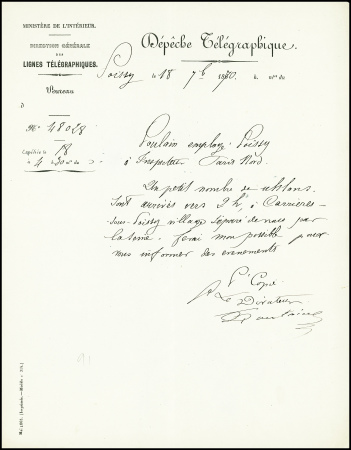 MINISTÈRE DE L'INTÉRIEUR.
DIRECTION GÉNÉRALE
DES
LIGNES TÉLÉGRAPHIQUES.
Bureau
d
Dépêche Télégraphique.
Poissy le 18 7b 1870. h. mn du
No 48028
Expédiée le 18
à 4 h. 30 mn du
Poulain employé Poissy
à Inspecteur Paris Nord.
Un petit nombre de uhlans
sont arrivés vers 9 h, à Carrières
sous-Poissy village séparé de nous par
la seine. ferai mon possible pour
vous informer des evenements
Pr Copie
Le Directeur